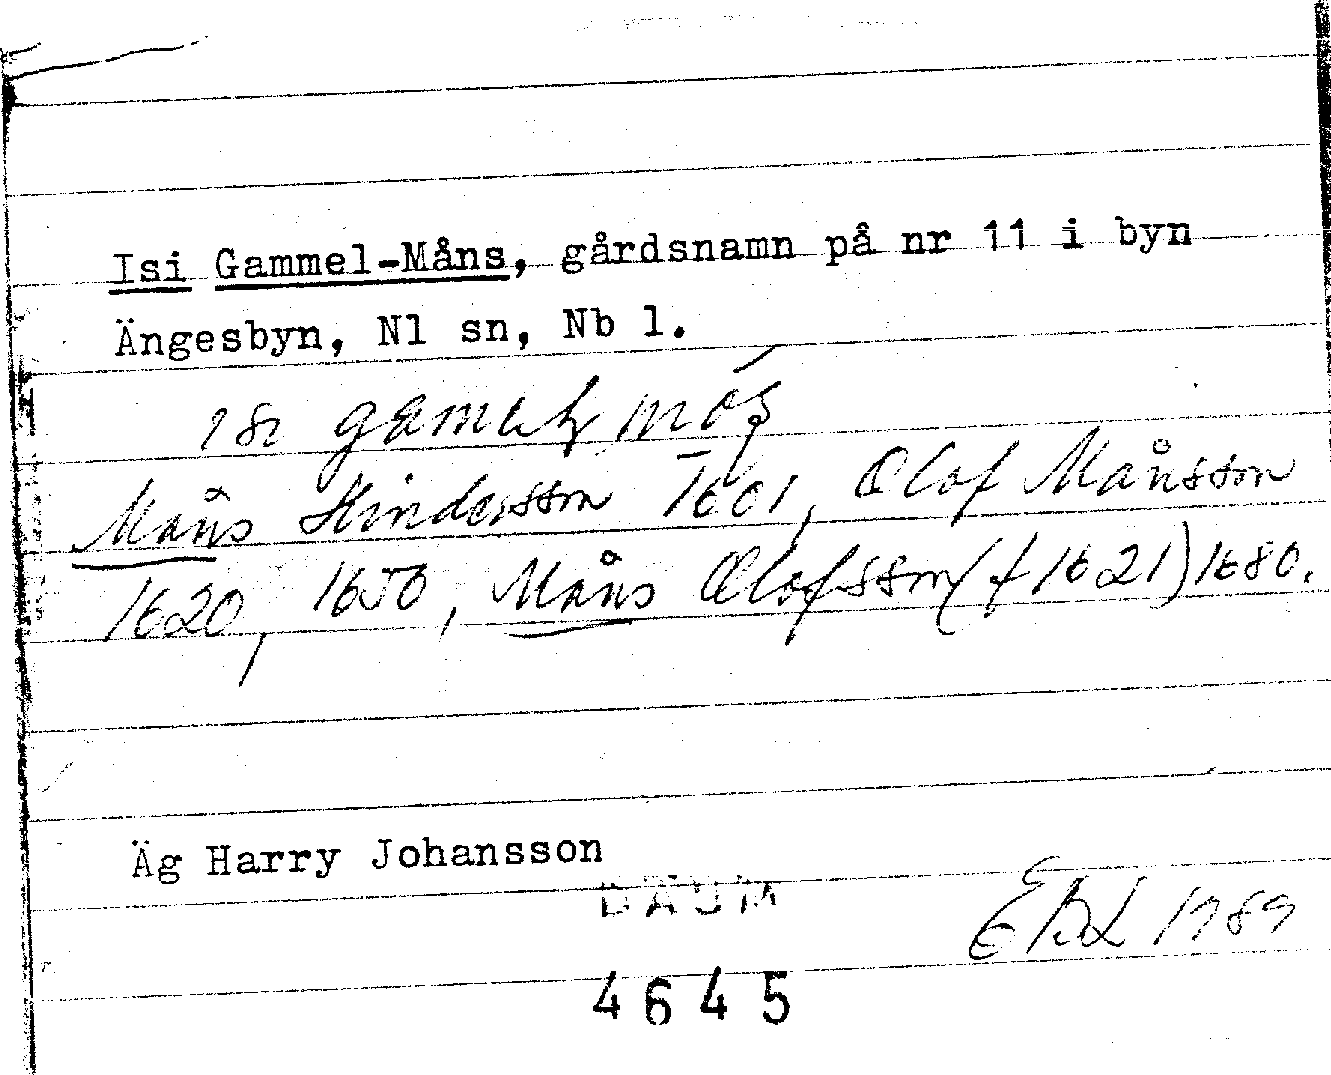 Isi Gammel-Måns, gårdsnamn på nr 11 i byn
Ängesbyn, Nl sn, Nb l.
Måns Hindersson 1601, Olof Månsson
1620, 1650, Måns Olofsson (f 1621) 1680.
Äg Harry Johansson
DAUM
1989
4645